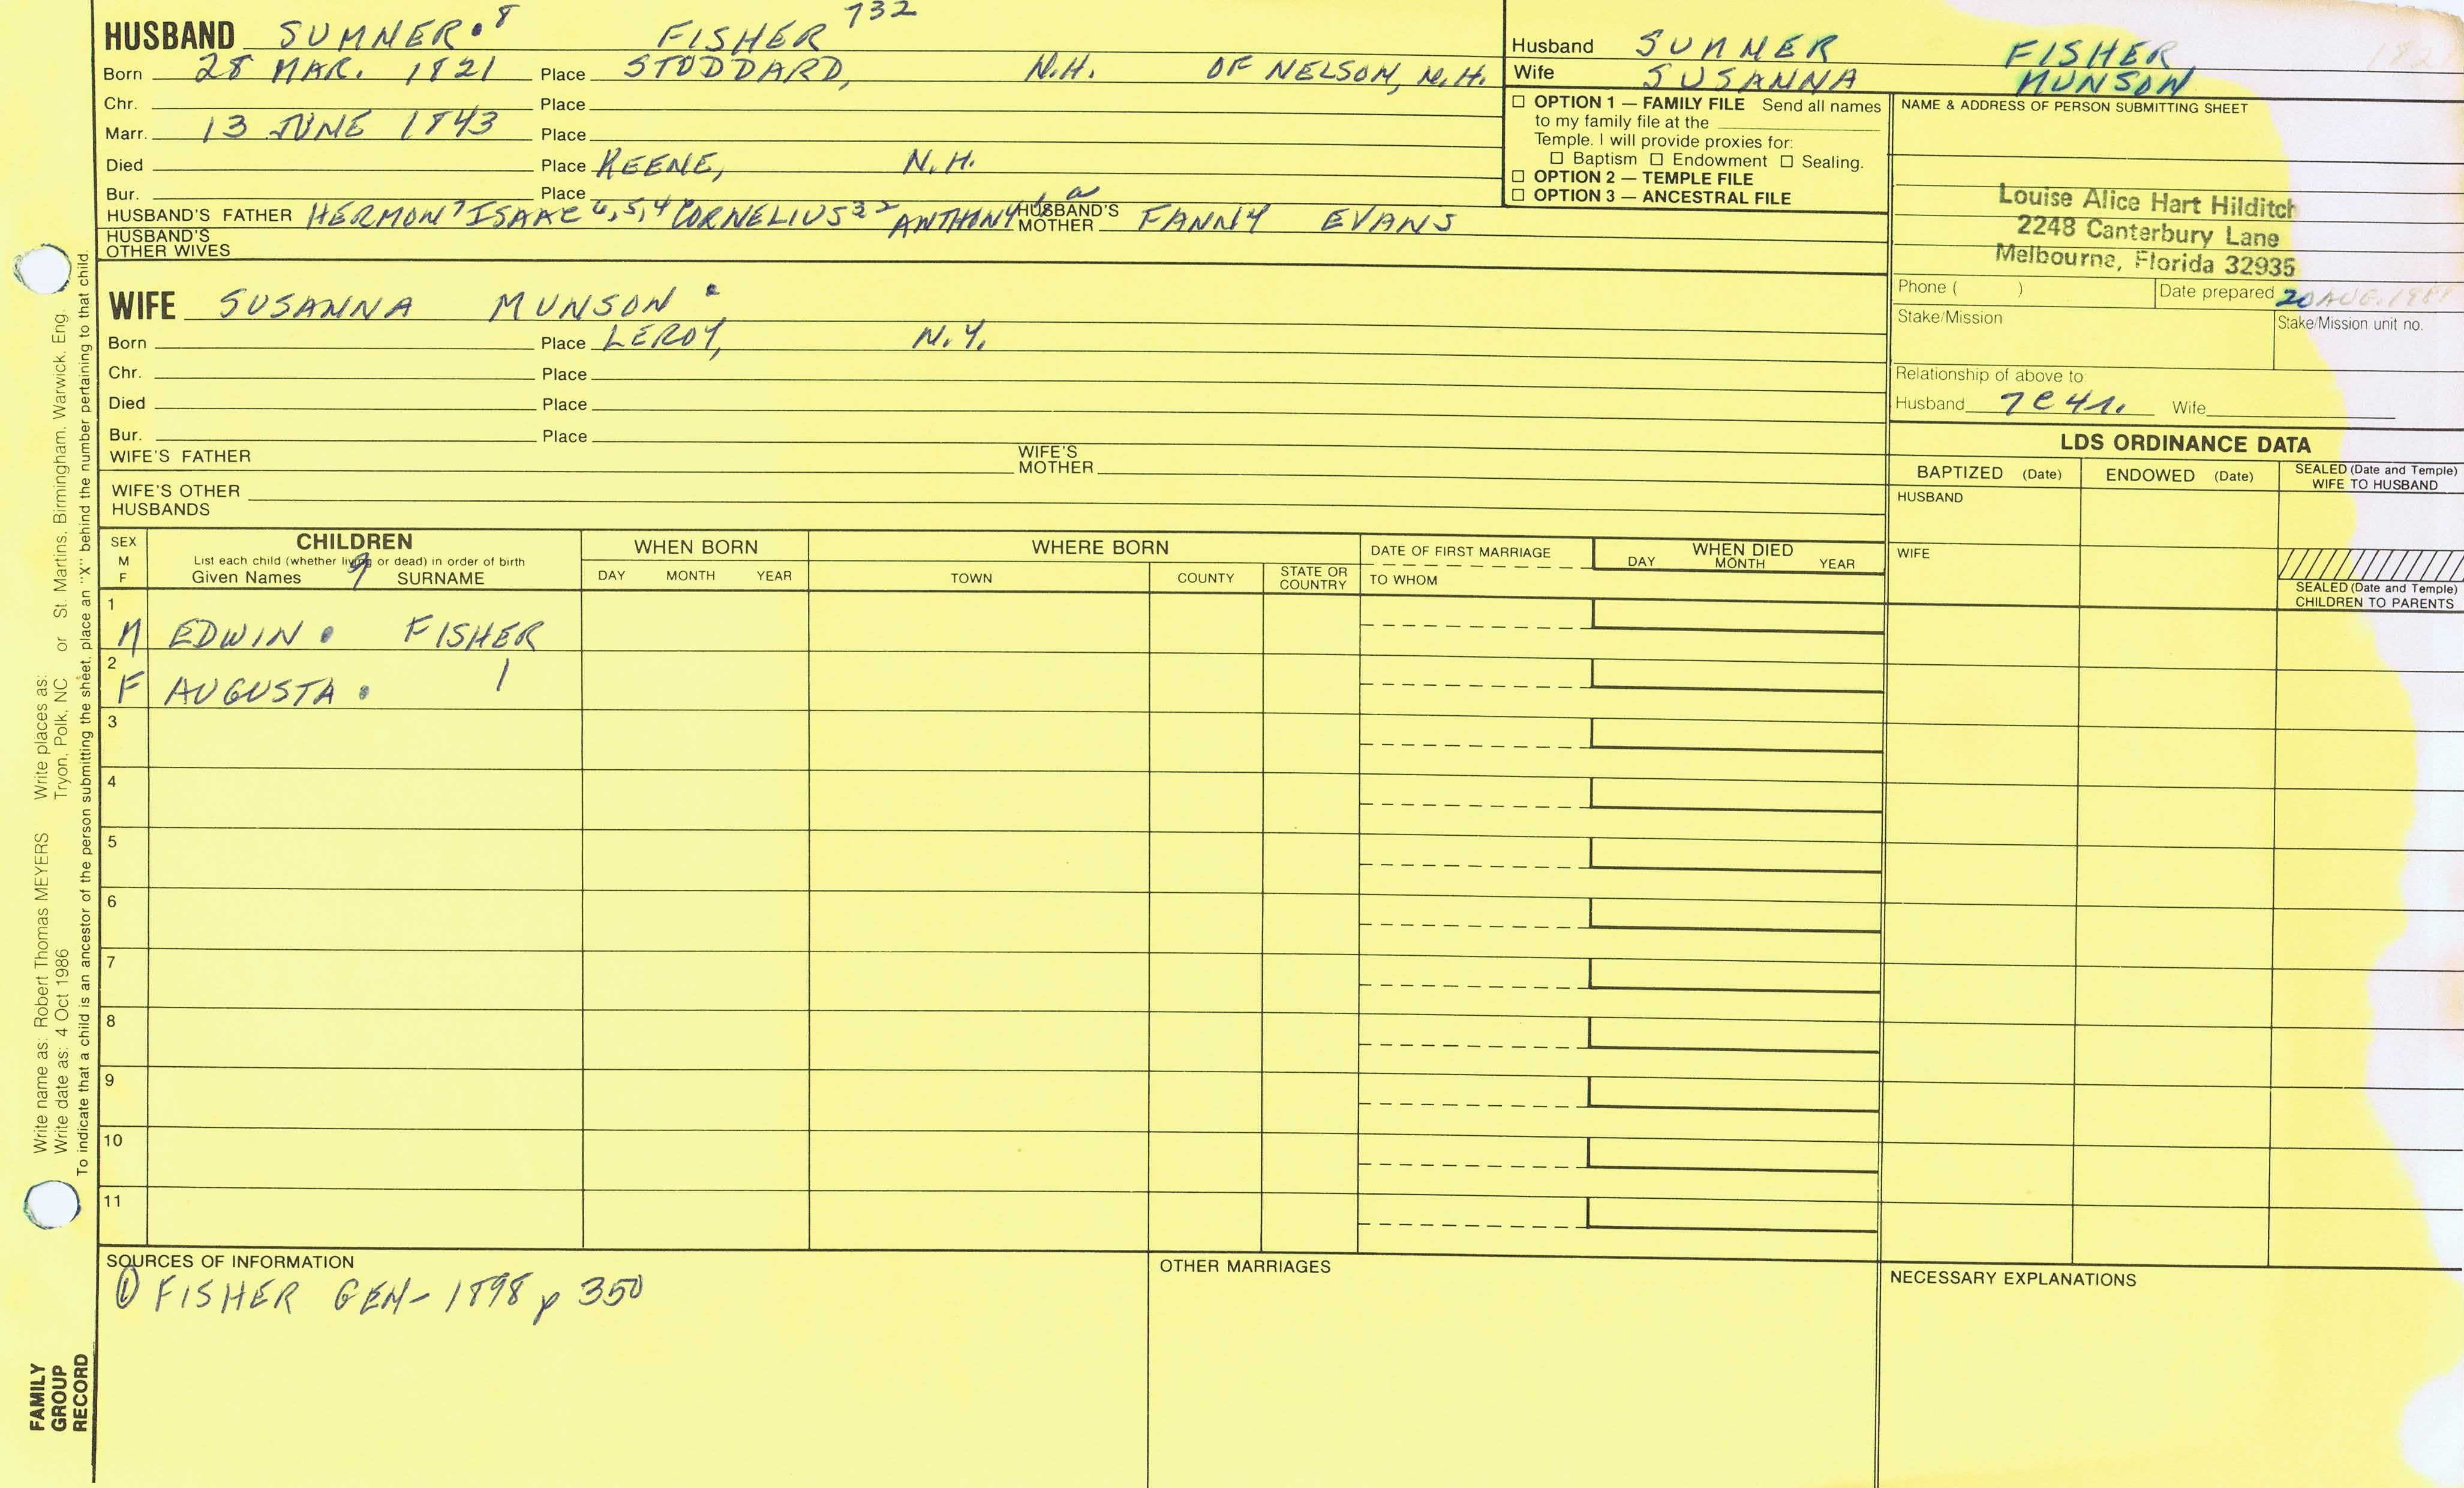 HUSBAND SUMNER.8 FISHER 732
Born 28 MAR. 1821 Place STODDARD, N.H. OF NELSON, N.H.
Chr. Place
Marr. 13 JUNE 1843 Place
Died Place KEENE, N.H.
Bur. Place
HUSBAND'S FATHER HERMON7 ISAAC6,5,4 CORNELIUS3 2 ANTHONY1 HUSBAND'S MOTHER FANNY EVANS
HUSBAND'S OTHER WIVES
WIFE SUSANNA MUNSON
Born Place LEROY, N.Y.
Chr. Place
Died Place
Bur. Place
WIFE'S FATHER WIFE'S MOTHER
WIFE'S OTHER HUSBANDS
Husband SUMNER FISHER
Wife SUSANNA MUNSON
OPTION 1 — FAMILY FILE Send all names
to my family file at the
Temple. I will provide proxies for:
Baptism Endowment Sealing.
OPTION 2 — TEMPLE FILE
OPTION 3 — ANCESTRAL FILE
NAME & ADDRESS OF PERSON SUBMITTING SHEET
Louise Alice Hart Hilditch
2248 Canterbury Lane
Melbourne, Florida 32935
Phone ( ) Date prepared 20 AUG.
Stake/Mission Stake/Mission unit no.
Relationship of above to
Husband 7C4R. Wife
LDS ORDINANCE DATA
BAPTIZED (Date) ENDOWED (Date) SEALED (Date and Temple) WIFE TO HUSBAND
HUSBAND
WIFE
SEALED (Date and Temple) CHILDREN TO PARENTS
SEX M F
CHILDREN
List each child (whether living or dead) in order of birth
Given Names 9 SURNAME
WHEN BORN
DAY MONTH YEAR
WHERE BORN
TOWN COUNTY STATE OR COUNTRY
DATE OF FIRST MARRIAGE
TO WHOM
WHEN DIED
DAY MONTH YEAR
1
M EDWIN. FISHER
2
F AUGUSTA.
3
4
5
6
7
8
9
10
11
SOURCES OF INFORMATION
① FISHER GEN- 1898 p 350
OTHER MARRIAGES
NECESSARY EXPLANATIONS
Write name as: Robert Thomas MEYERS Write places as:
Write date as: 4 Oct 1986 Tryon, Polk, NC or St. Martins, Birmingham, Warwick, Eng.
To indicate that a child is an ancestor of the person submitting the sheet, place an "X" behind the number pertaining to that child.
FAMILY
GROUP
RECORD